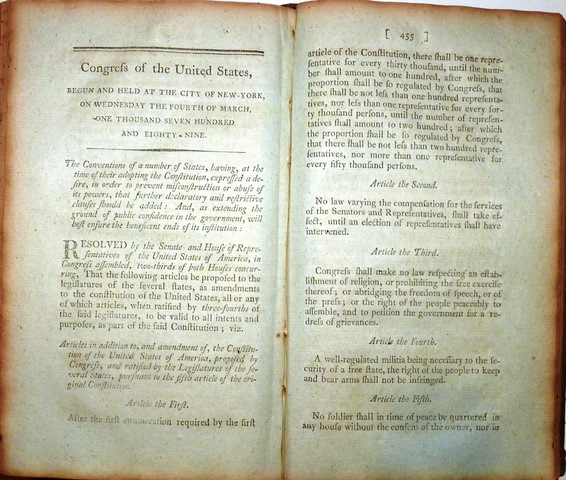 Congreſs of the United States,
BEGUN AND HELD AT THE CITY OF NEW-YORK,
ON WEDNESDAY THE FOURTH OF MARCH,
ONE THOUSAND SEVEN HUNDRED
AND EIGHTY-NINE.
The Conventions of a number of States, having, at the
time of their adopting the Conſtitution, expreſſed a de-
ſire, in order to prevent miſconſtruction or abuſe of
its powers, that further declaratory and reſtrictive
clauſes ſhould be added: And, as extending the
ground of public confidence in the government, will
beſt enſure the beneficent ends of its inſtitution:
RESOLVED by the Senate and Houſe of Repre-
ſentatives of the United States of America, in
Congreſs aſſembled, two-thirds of both Houſes concur-
ring, That the following articles be propoſed to the
legiſlatures of the ſeveral ſtates, as amendments
to the conſtitution of the United States, all or any
of which articles, when ratified by three-fourths of
the ſaid legiſlatures, to be valid to all intents and
purpoſes, as part of the ſaid Conſtitution; viz.
Articles in addition to, and amendment of, the Conſtitu-
tion of the United States of America, propoſed by
Congreſs, and ratified by the Legiſlatures of the ſe-
veral States, purſuant to the fifth article of the ori-
ginal Conſtitution.
Article the Firſt.
After the firſt enumeration required by the firſt
[ 455 ]
article of the Conſtitution, there ſhall be one repre-
ſentative for every thirty thouſand, until the num-
ber ſhall amount to one hundred, after which the
proportion ſhall be ſo regulated by Congreſs, that
there ſhall be not leſs than one hundred repreſenta-
tives, nor leſs than one repreſentative for every for-
ty thouſand perſons, until the number of repreſen-
tatives ſhall amount to two hundred; after which
the proportion ſhall be ſo regulated by Congreſs,
that there ſhall be not leſs than two hundred repre-
ſentatives, nor more than one repreſentative for
every fifty thouſand perſons.
Article the Second.
No law varying the compenſation for the ſervices
of the Senators and Repreſentatives, ſhall take ef-
fect, until an election of repreſentatives ſhall have
intervened.
Article the Third.
Congreſs ſhall make no law reſpecting an eſtab-
liſhment of religion, or prohibiting the free exerciſe
thereof; or abridging the freedom of ſpeech, or of
the preſs; or the right of the people peaceably to
aſſemble, and to petition the government for a re-
dreſs of grievances.
Article the Fourth.
A well-regulated militia being neceſſary to the ſe-
curity of a free ſtate, the right of the people to keep
and bear arms ſhall not be infringed.
Article the Fifth.
No ſoldier ſhall in time of peace be quartered in
any houſe without the conſent of the owner, nor in